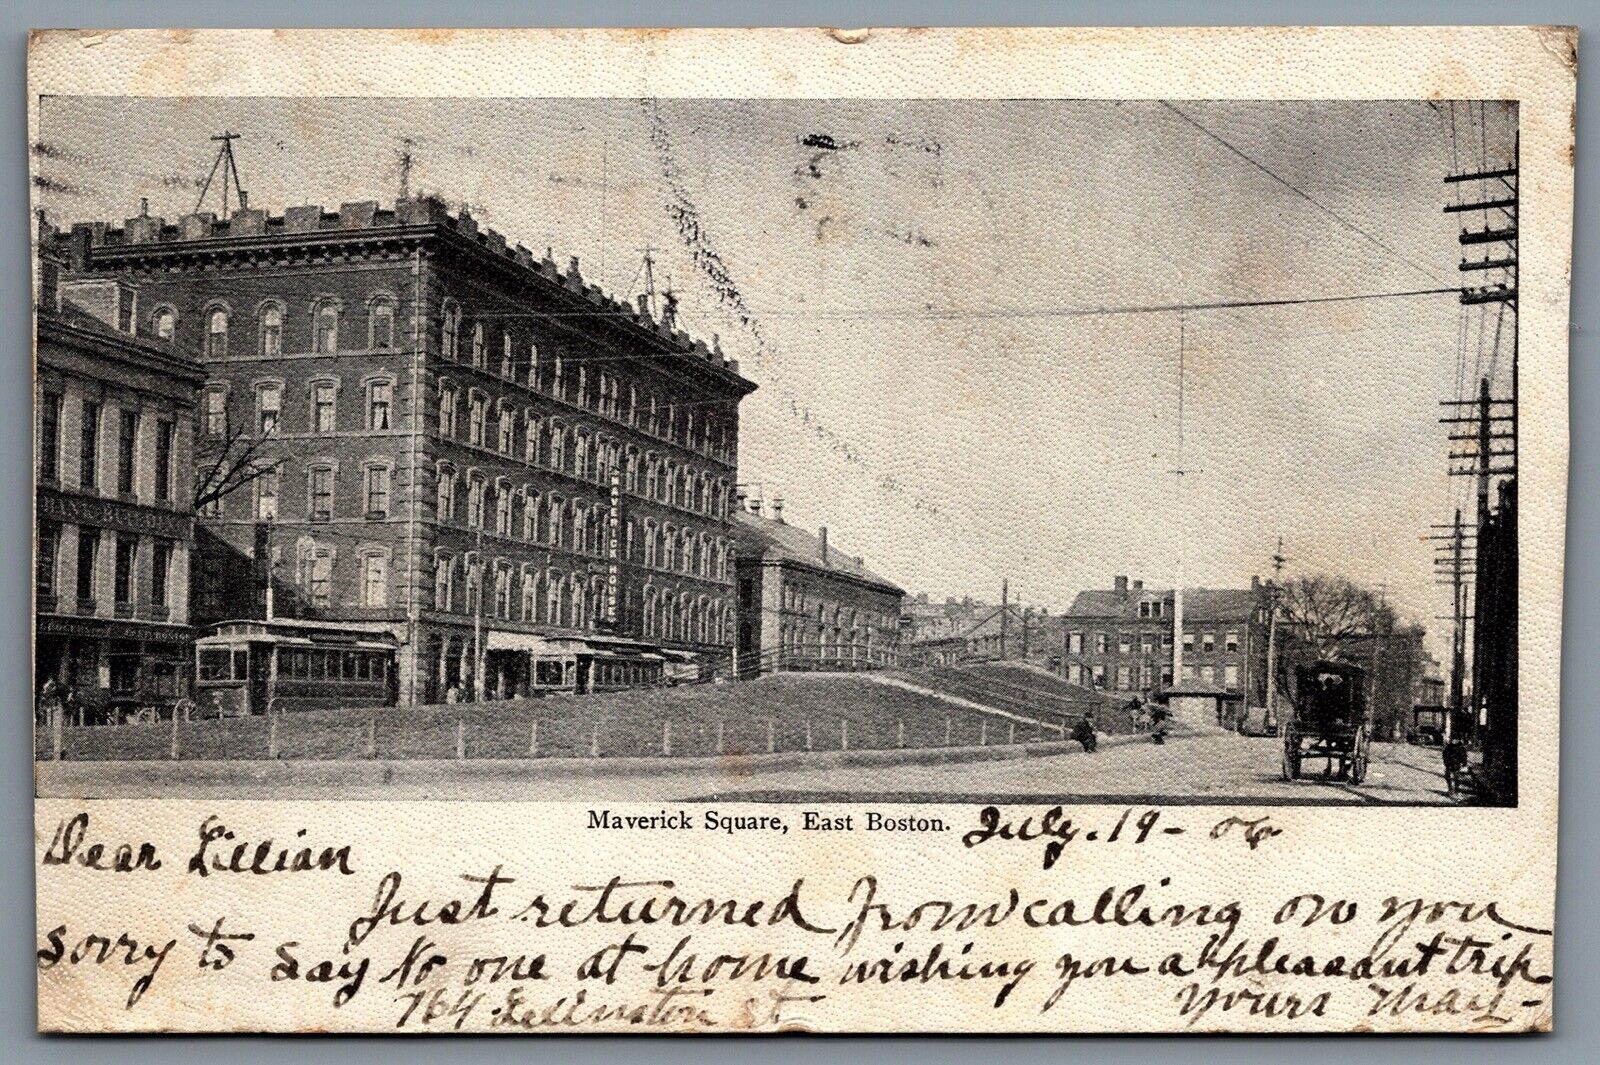 MAVERICK HOUSE
Maverick Square, East Boston.
July. 19 - 06
Dear Lillian
Just returned from calling on you
sorry to say No one at home wishing you a pleasant trip
Yours May -
764 St